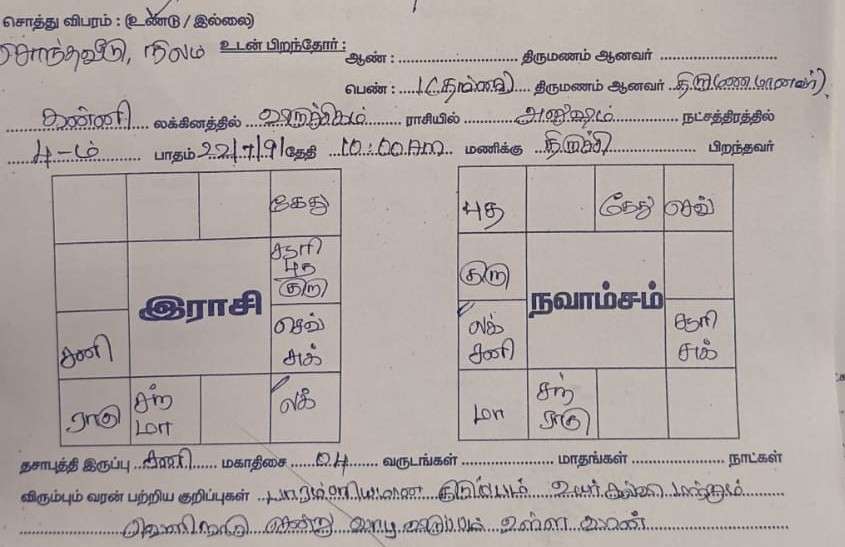 சொத்து விபரம் : (உண்டு / இல்லை)
சொந்தவீடு, நிலம் உடன் பிறந்தோர் : ஆண் : .................... திருமணம் ஆனவர் ....................
பெண் : ....1 (தங்கை).... திருமணம் ஆனவர் ..திருமணமானவர்)
கன்னி லக்கினத்தில் விருச்சிகம் ராசியில் அனுஷம் நட்சத்திரத்தில்
4-ம் பாதம் 22/7/91 தேதி 10:00AM மணிக்கு திருச்சி பிறந்தவர்
கேது
புத கேது செவ்
சூரி
புத
குரு
குரு
இராசி
நவாம்சம்
சனி
செவ்
சுக்
லக்
சனி
சூரி
சுக்
ராகு சந் லக்
மா
மா சந்
ராகு
தசாபுத்தி இருப்பு ..சனி...... மகாதிசை ....04..... வருடங்கள் .................... மாதங்கள் .................... நாட்கள்
விரும்பும் வரன் பற்றிய குறிப்புகள் பாரம்பரியமான குடும்பம் உயர் கல்வி மற்றும்
வெளிநாடு சென்று வாழ விருப்பம் உள்ள வரன்